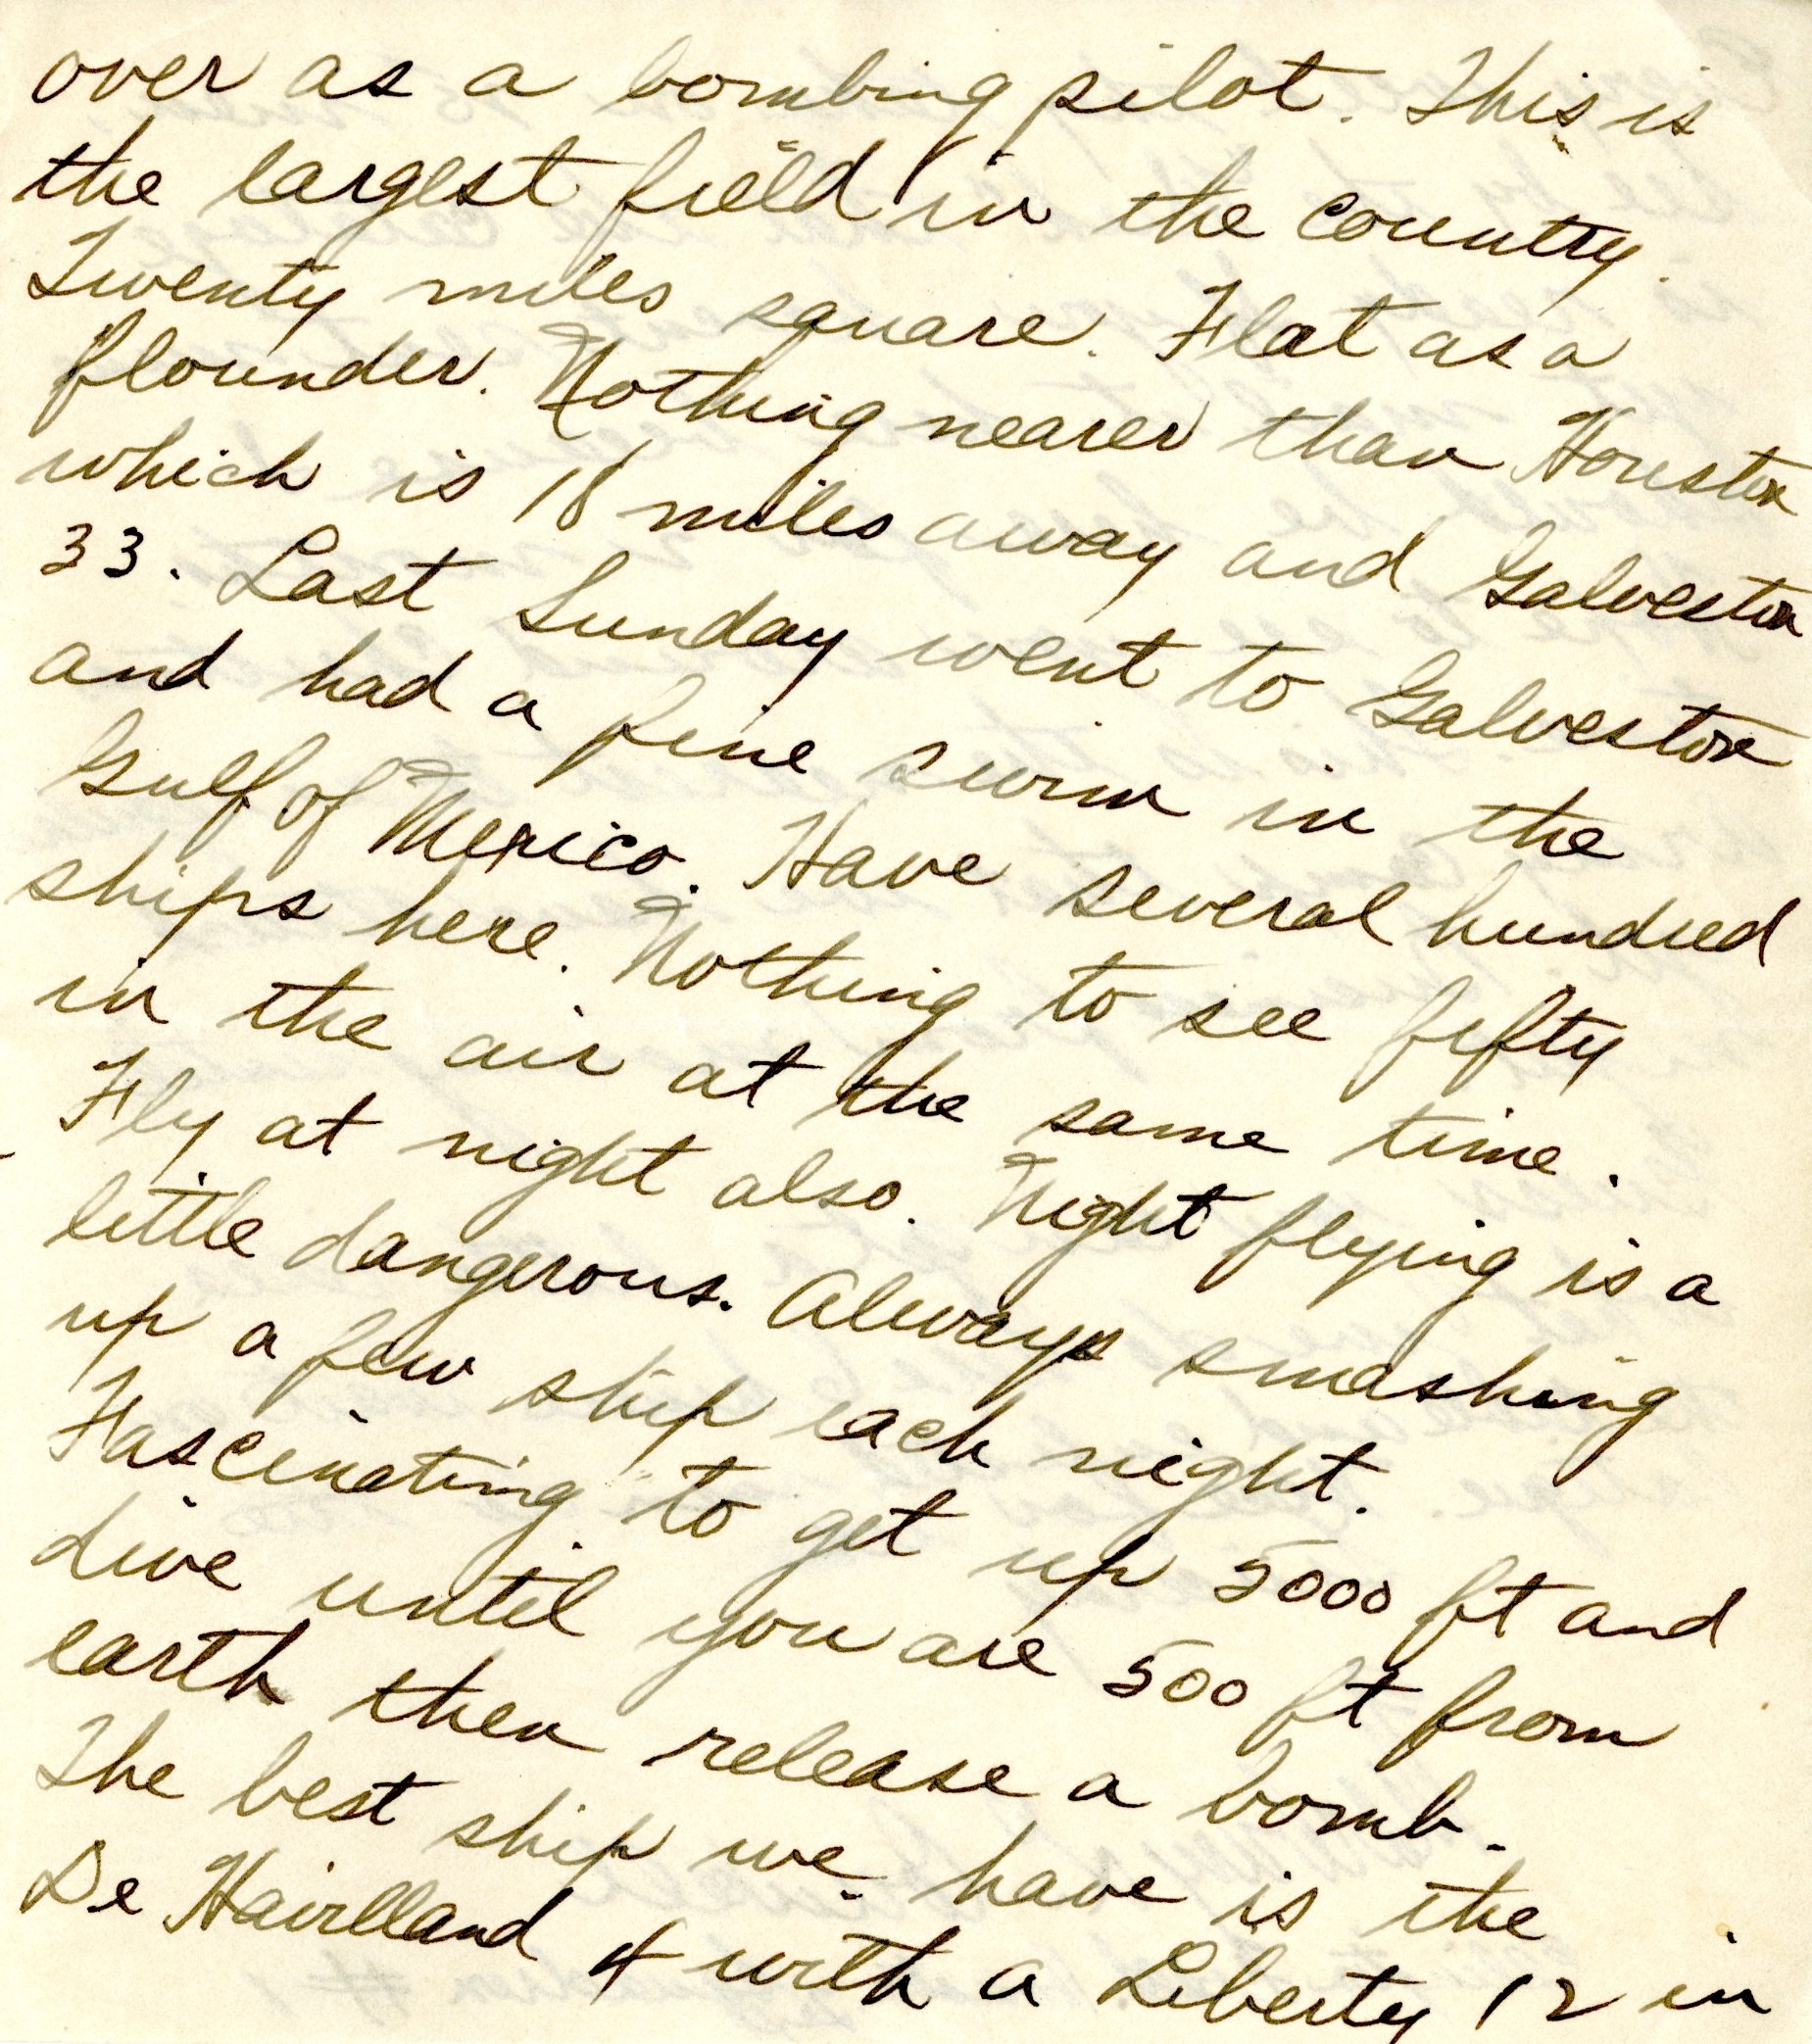 over as a bombing pilot. This is
the largest field in the country.
Twenty miles square. Flat as a
flounder. Nothing nearer than Houston
which is 18 miles away and Galveston
33. Last Sunday went to Galveston
and had a fine swim in the
Gulf of Mexico. Have several hundred
ships here. Nothing to see fifty
in the air at the same time.
Fly at night also. Night flying is a
little dangerous. Always smashing
up a few ship each night.
Fascinating to get up 5000 ft and
dive until you are 500 ft from
earth then release a bomb.
The best ship we have is the
De Havilland 4 with a Liberty 12 in